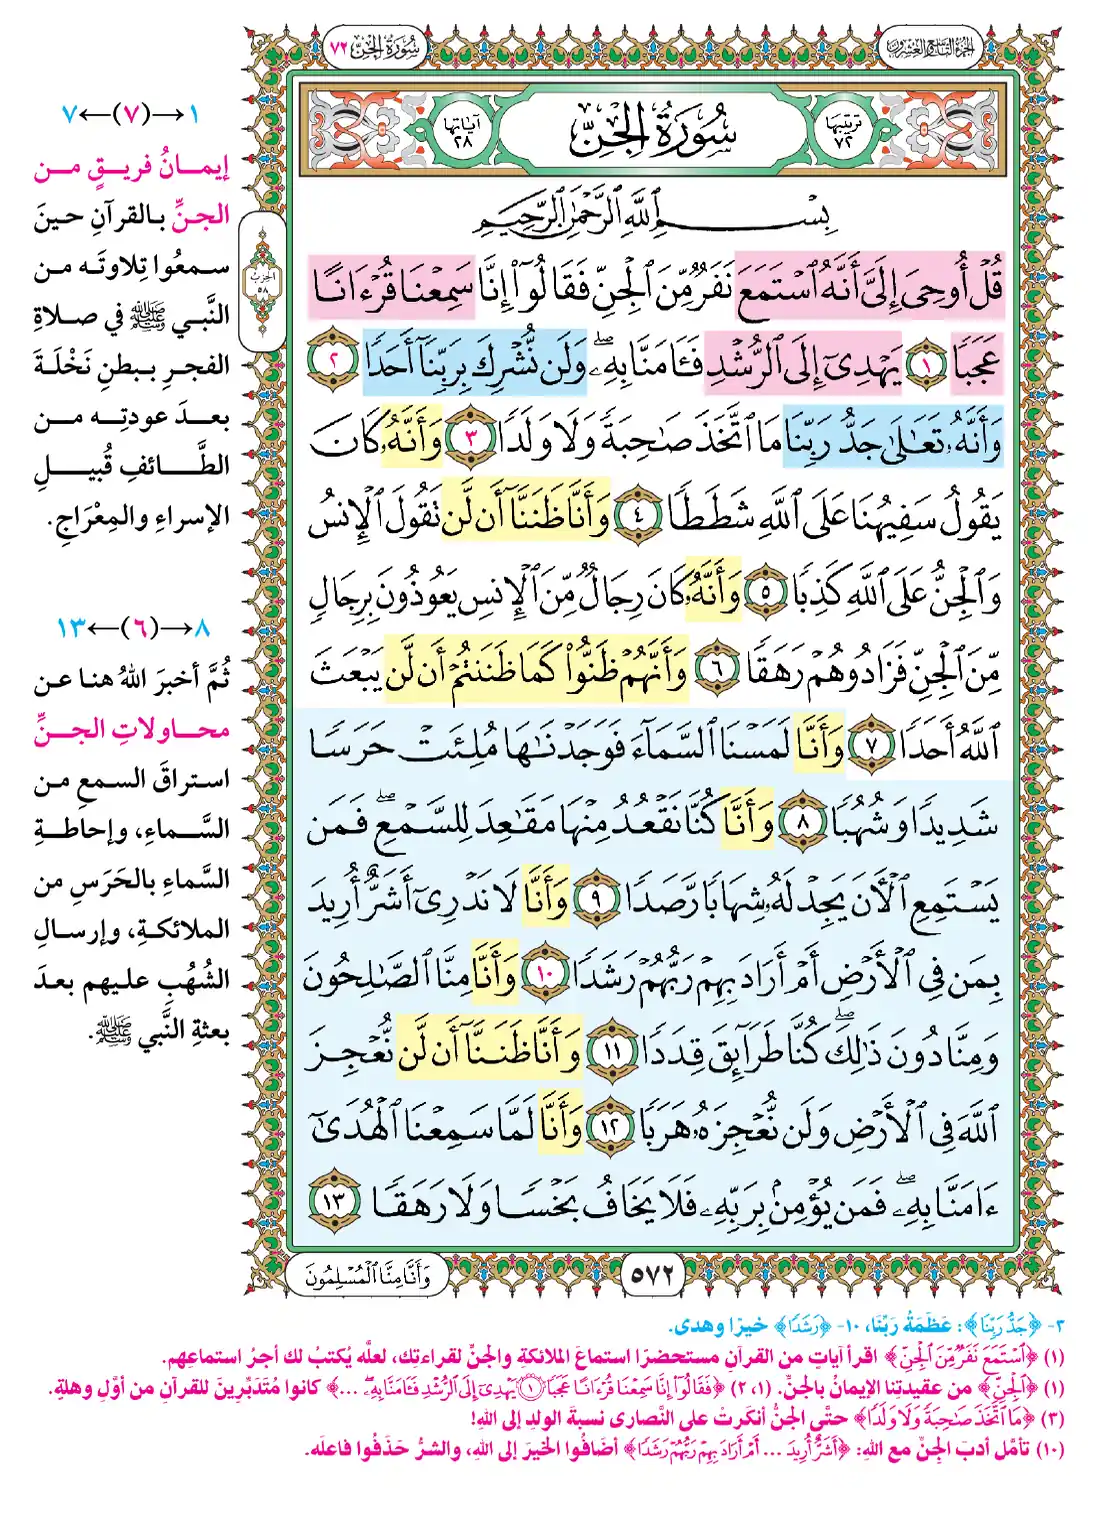 الجزء التاسع والعشرون
سُورَةُ الجِنِّ ٧٢
ترتيبها ٧٢
سُورَةُ الجِنِّ
آياتها ٢٨
بِسْمِ ٱللَّهِ ٱلرَّحْمَٰنِ ٱلرَّحِيمِ
قُلْ أُوحِىَ إِلَىَّ أَنَّهُ ٱسْتَمَعَ نَفَرٌ مِّنَ ٱلْجِنِّ فَقَالُوٓا۟ إِنَّا سَمِعْنَا قُرْءَانًا
عَجَبًا ١ يَهْدِىٓ إِلَى ٱلرُّشْدِ فَـَٔامَنَّا بِهِۦ ۖ وَلَن نُّشْرِكَ بِرَبِّنَآ أَحَدًا ٢
وَأَنَّهُۥ تَعَٰلَىٰ جَدُّ رَبِّنَا مَا ٱتَّخَذَ صَٰحِبَةً وَلَا وَلَدًا ٣ وَأَنَّهُۥ كَانَ
يَقُولُ سَفِيهُنَا عَلَى ٱللَّهِ شَطَطًا ٤ وَأَنَّا ظَنَنَّآ أَن لَّن تَقُولَ ٱلْإِنسُ
وَٱلْجِنُّ عَلَى ٱللَّهِ كَذِبًا ٥ وَأَنَّهُۥ كَانَ رِجَالٌ مِّنَ ٱلْإِنسِ يَعُوذُونَ بِرِجَالٍ
مِّنَ ٱلْجِنِّ فَزَادُوهُمْ رَهَقًا ٦ وَأَنَّهُمْ ظَنُّوا۟ كَمَا ظَنَنتُمْ أَن لَّن يَبْعَثَ
ٱللَّهُ أَحَدًا ٧ وَأَنَّا لَمَسْنَا ٱلسَّمَآءَ فَوَجَدْنَٰهَا مُلِئَتْ حَرَسًا
شَدِيدًا وَشُهُبًا ٨ وَأَنَّا كُنَّا نَقْعُدُ مِنْهَا مَقَٰعِدَ لِلسَّمْعِ ۖ فَمَن
يَسْتَمِعِ ٱلْـَٔانَ يَجِدْ لَهُۥ شِهَابًا رَّصَدًا ٩ وَأَنَّا لَا نَدْرِىٓ أَشَرٌّ أُرِيدَ
بِمَن فِى ٱلْأَرْضِ أَمْ أَرَادَ بِهِمْ رَبُّهُمْ رَشَدًا ١٠ وَأَنَّا مِنَّا ٱلصَّٰلِحُونَ
وَمِنَّا دُونَ ذَٰلِكَ ۖ كُنَّا طَرَآئِقَ قِدَدًا ١١ وَأَنَّا ظَنَنَّآ أَن لَّن نُّعْجِزَ
ٱللَّهَ فِى ٱلْأَرْضِ وَلَن نُّعْجِزَهُۥ هَرَبًا ١٢ وَأَنَّا لَمَّا سَمِعْنَا ٱلْهُدَىٰٓ
ءَامَنَّا بِهِۦ ۖ فَمَن يُؤْمِنۢ بِرَبِّهِۦ فَلَا يَخَافُ بَخْسًا وَلَا رَهَقًا ١٣
٥٧٢
وَأَنَّا مِنَّا ٱلْمُسْلِمُونَ
١→(٧)←٧
إيمانُ فريقٍ من
الجنِّ بالقرآنِ حينَ
سمعُوا تِلاوتَه من
النَّبي ﷺ في صلاةِ
الفجرِ ببطنِ نَخْلَةَ
بعدَ عودتِه من
الطَّائفِ قُبيلِ
الإسراءِ والمِعْرَاجِ.
٨→(٦)←١٣
ثُمَّ أخبرَ اللهُ هنا عن
محاولاتِ الجنِّ
استراقَ السمعِ من
السَّماءِ، وإحاطةِ
السَّماءِ بالحَرَسِ من
الملائكةِ، وإرسالِ
الشُهُبِ عليهم بعدَ
بعثةِ النَّبي ﷺ.
الحزب ٥٨
٣- ﴿جَدُّ رَبِّنَا﴾: عَظَمَةُ رَبِّنَا، ١٠- ﴿رَشَدًا﴾ خيرًا وهدى.
(١) ﴿ٱسْتَمَعَ نَفَرٌ مِّنَ ٱلْجِنِّ﴾ اقرأ آياتٍ من القرآنِ مستحضرًا استماعَ الملائكةِ والجنِّ لقراءتِك، لعلَّه يُكتبُ لك أجرُ استماعِهم.
(١) ﴿ٱلْجِنِّ﴾ من عقيدتِنا الإيمانُ بالجنِّ. (١، ٢) ﴿فَقَالُوٓا۟ إِنَّا سَمِعْنَا قُرْءَانًا عَجَبًا ١ يَهْدِىٓ إِلَى ٱلرُّشْدِ فَـَٔامَنَّا بِهِۦ ۖ ...﴾ كانوا مُتَدَبِّرِينَ للقرآنِ من أوَّلِ وهلةٍ.
(٣) ﴿مَا ٱتَّخَذَ صَٰحِبَةً وَلَا وَلَدًا﴾ حتَّى الجنُّ أنكرَتْ على النَّصارى نسبةَ الولدِ إلى اللهِ!
(١٠) تأمَّل أدبَ الجِنِّ مع اللهِ: ﴿أَشَرٌّ أُرِيدَ ... أَمْ أَرَادَ بِهِمْ رَبُّهُمْ رَشَدًا﴾ أضافُوا الخيرَ إلى اللهِ، والشرُّ حَذَفُوا فاعلَه.